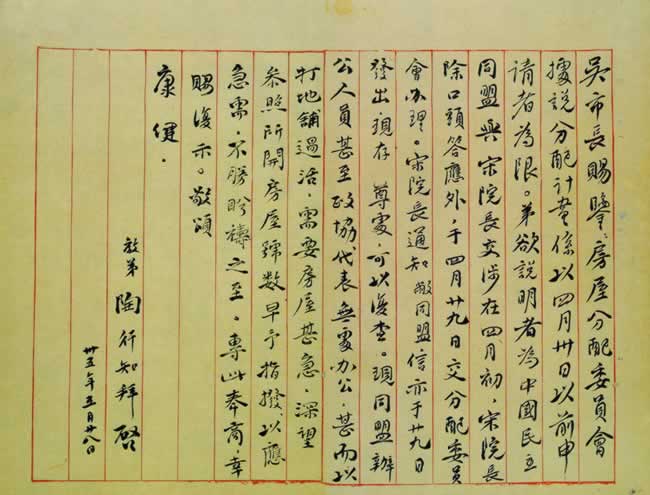 吳市長賜鑒：房屋分配委員會
據說分配計畫係以四月卅日以前申
請者為限。弟欲說明者為中國民主
同盟與宋院長交涉在四月初，宋院長
除口頭答應外，于四月廿九日交分配委員
會辦理。宋院長通知敝同盟信亦于廿九日
發出，現存尊處，可以復查。現同盟辦
公人員甚至政協代表無處辦公，甚而以
打地舖過活，需要房屋甚急，深望
參照所開房屋號數早予指撥，以應
急需，不勝盼禱之至。專此奉商，幸
賜復示。敬頌
康健．
教弟陶行知拜啓
卅五年五月廿八日